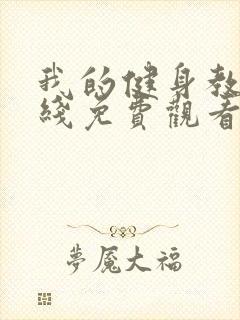 我的健身教
綫免費觀看
夢魘大福